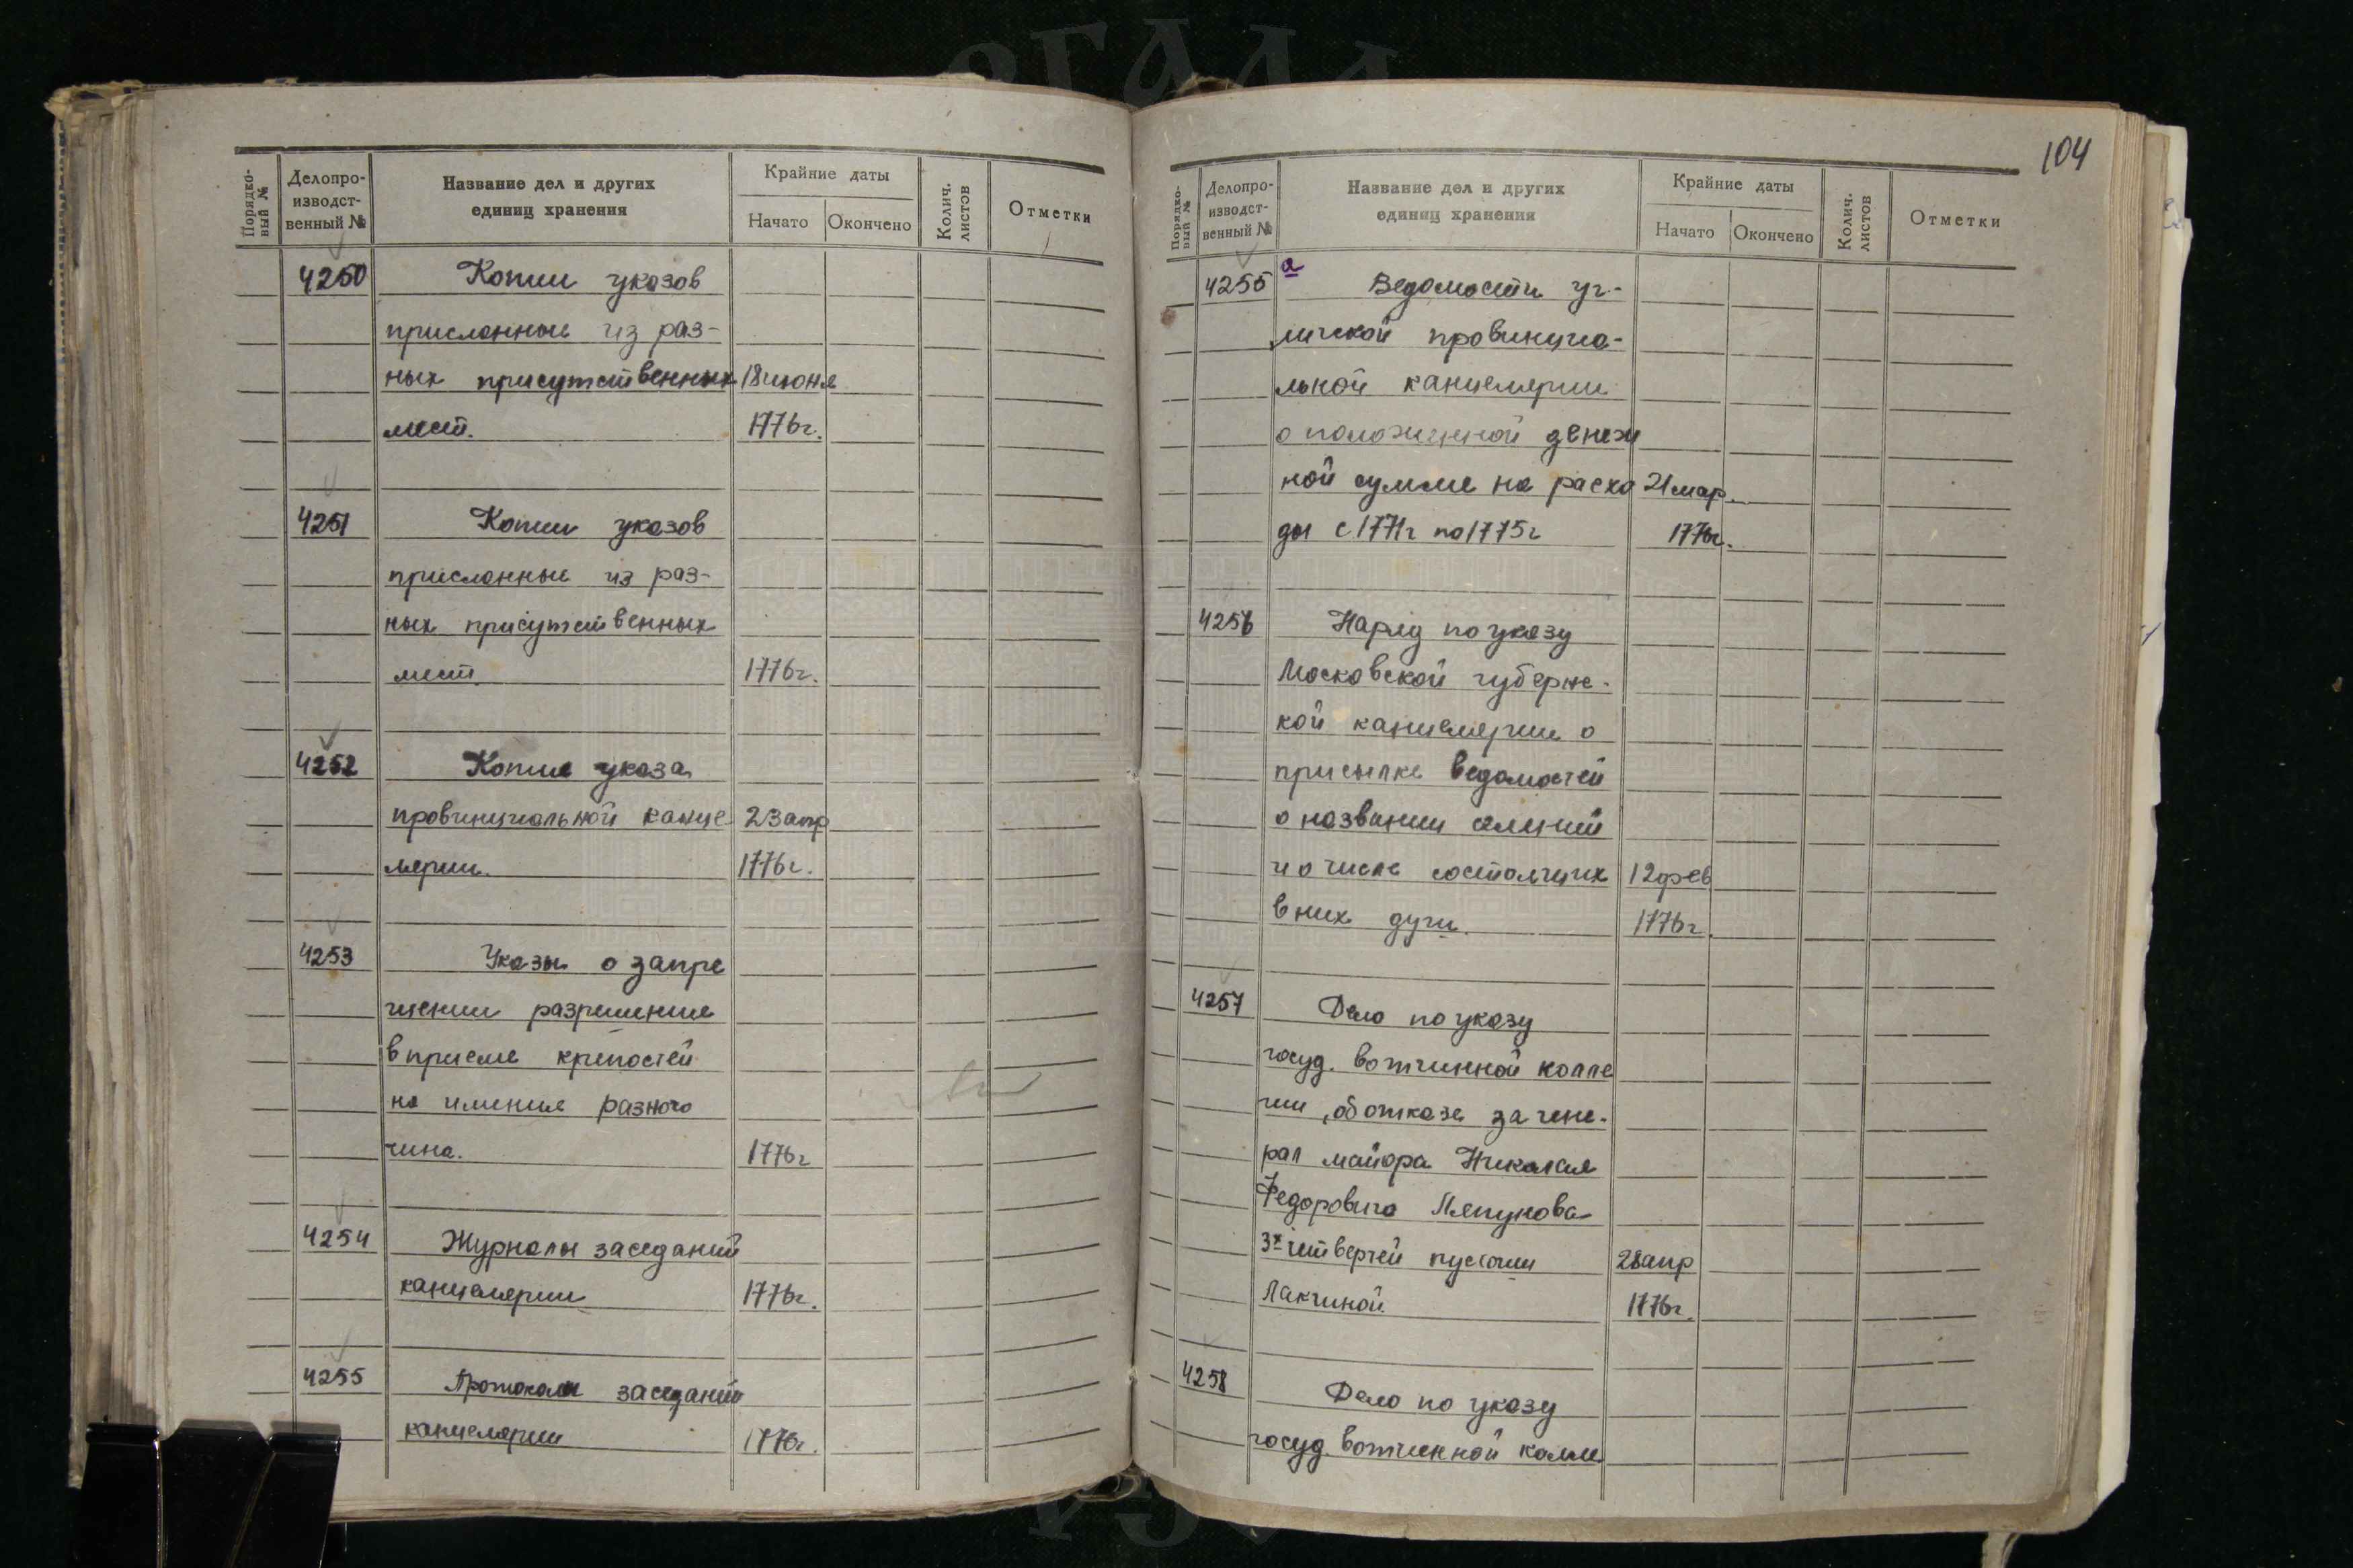 Порядковый №
Делопроизводственный №
Название дел и других
единиц хранения
Крайние даты
Начато
Окончено
Колич. листов
Отметки
4250 Копии указов
присланные из раз-
ных присутственных 18 июня
мест. 1776г.
4251 Копии указов
присланные из раз-
ных присутственных
мест. 1776г.
4252 Копие указа
провинциальной канце 23 апр
лярии. 1776г.
4253 Указы о запре
щении разрешение
в приеме крепостей
на имение разного
чина. 1776г
4254 Журналы заседаний
канцелярии 1776г.
4255 Протоколы заседаний
канцелярии 1776г.
104
Порядковый №
Делопроизводственный №
Название дел и других
единиц хранения
Крайние даты
Начато
Окончено
Колич. листов
Отметки
4255 а Ведомости уг-
личской провинциа-
льной канцелярии
о положенной денеж
ной сумме на расхо 21 мар.
ды с 1771г по 1775г 1776г.
4256 Наряд по указу
Московской губернс-
кой канцелярии о
присылке ведомостей
о названии селений
и о числе состоящих 12 фев
в них душ. 1776г.
4257 Дело по указу
госуд. вотчинной колле
гии, об отказе за гене-
рал майора Николая
Федоровича Ляпунова
3х четвертей пустоши 28 апр
Лакчиной. 1776г.
4258 Дело по указу
госуд. вотчинной колле